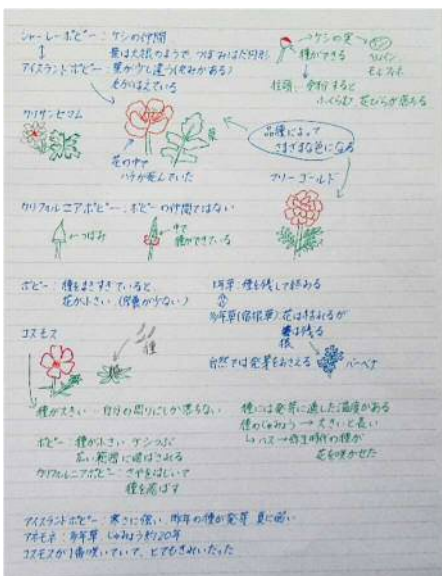 シャーレーポピー：ケシの仲間
葉は大根のようで、つぼみはだ円形
アイスランドポピー：葉が少し違う(丸みがある)
毛がはえている
→ケシの実
種ができる
モルフィネ
柱頭：受粉すると
ふくらむ 花びらが落ちる
クリサンセマム
葉
花の中で
ハチが死んでいた
品種によって
さまざまな色になる
マリーゴールド
カリフォルニアポピー：ポピーの仲間ではない
←つぼみ
←中で
種ができている
ポピー：種をまきすぎていると、
花が小さい(栄養が少ない)
1年草：種を残して終わる
多年草(宿根草) 花は枯れるが
根は残る
自然では発芽をおさえる
バーベナ
コスモス
種
種が大きい…自分の周りにしか落ちない
ポピー：種が小さい ケシつぶ
広い範囲に運ばれる
カリフォルニアポピー：さやをはじいて
種を落とす
種には発芽に適した温度がある
種のじゅみょう→大きいと長い
↳ハス→弥生時代の種が
花を咲かせた
アイスランドポピー：寒さに強い 昨年の種が発芽 夏に弱い
アネモネ：多年草 じゅみょう約20年
コスモスが1番咲いていて、とてもきれいだった